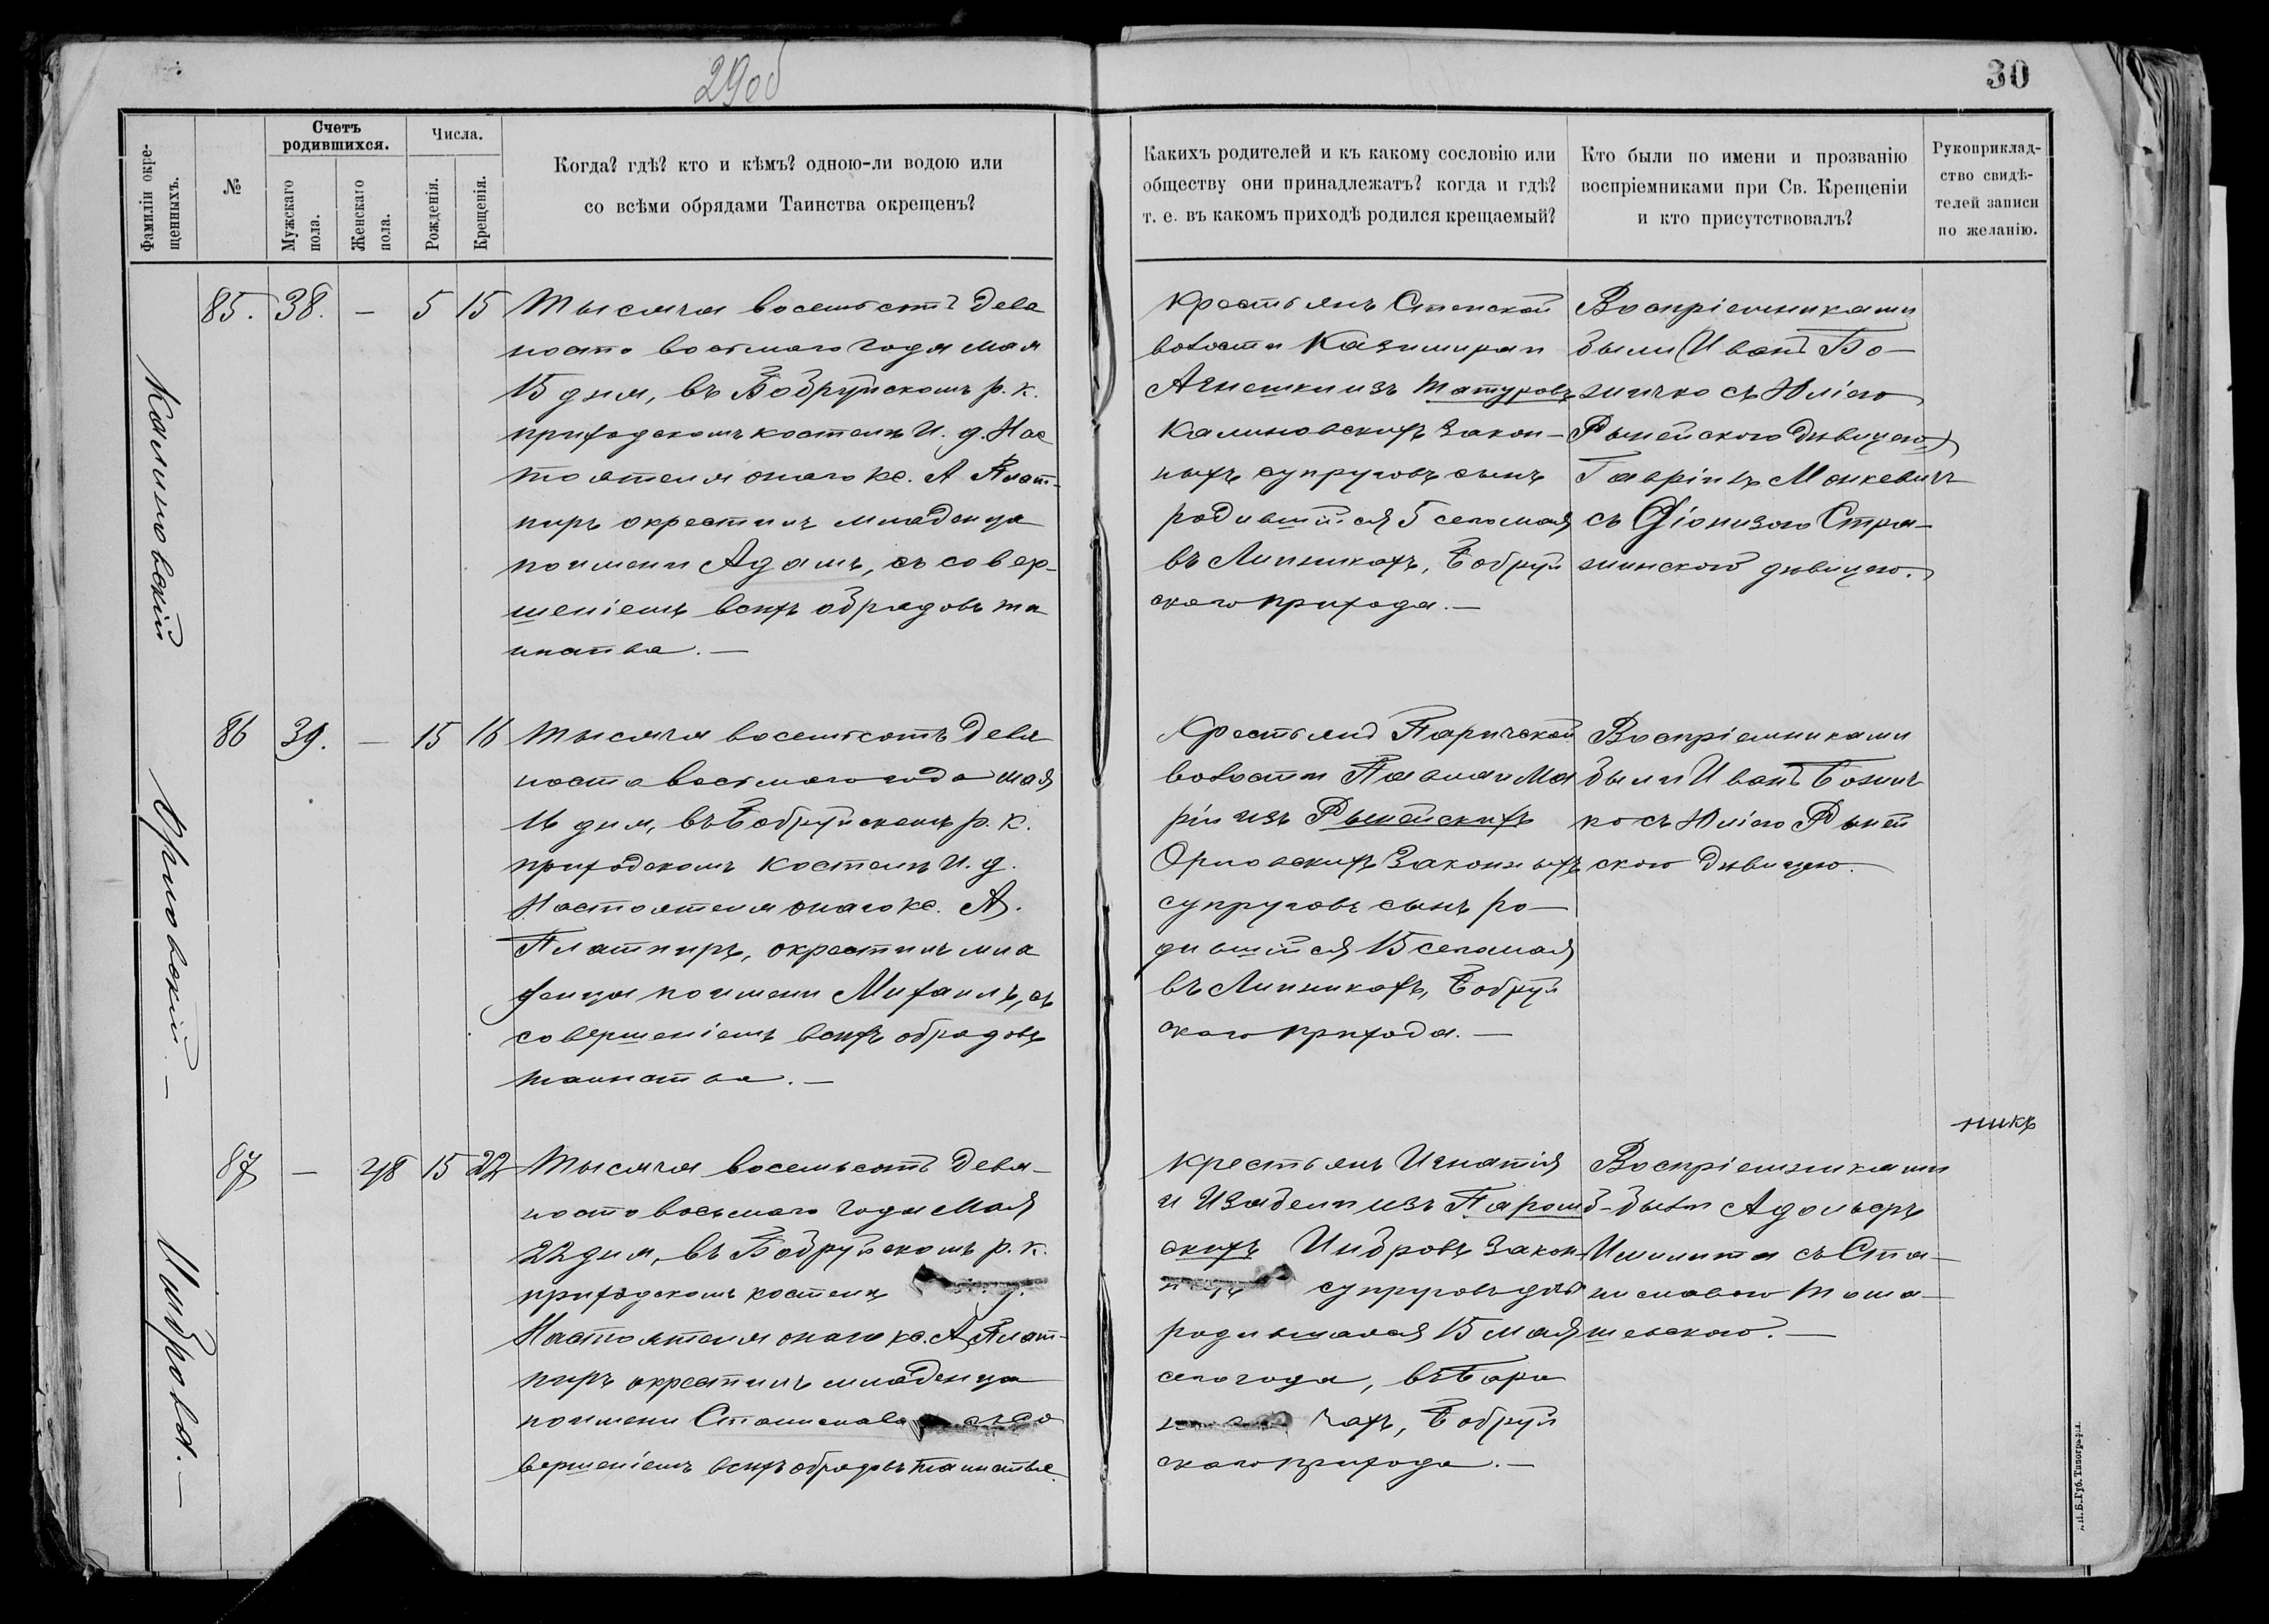 29 об
30
Фамиліи окре-
щенныхъ.
№
Счетъ
родившихся.
Мужскаго
пола.
Женскаго
пола.
Числа.
Рожденія.
Крещенія.
Когда? гдѣ? кто и кѣмъ? одною-ли водою или
со всѣми обрядами Таинства окрещенъ?
Какихъ родителей и къ какому сословію или
обществу они принадлежатъ? когда и гдѣ?
т. е. въ какомъ приходѣ родился крещаемый?
Кто были по имени и прозванію
воспріемниками при Св. Крещеніи
и кто присутствовалъ?
Рукоприклад-
ство свидѣ-
телей записи
по желанію.
Калиновскій
85. 38. — 5 15
Тысяча восемьсотъ девя
носто восьмого года мая
15 дня, въ Бобруйскомъ р. к.
приходскомъ костелѣ И. д. Нас
тоятеля онаго кс. А Плат-
пиръ окрестилъ младенца
по имени Адамъ, съ совер-
шеніемъ всѣхъ обрядовъ та
инства. —
Крестьянъ Степской
волости Казимира и
Агнешки изъ Татуровъ
Калиновскихъ закон-
ныхъ супруговъ сынъ
родившійся 5 сего мая
въ Липникахъ, Бобруй
скаго прихода. —
Воспріемниками
были Иванъ Бо-
жичко съ Юліею
Рынейскою дѣвицею,
Гавріилъ Монкевичъ
съ Діонизою Стра-
шинскою дѣвицею.
Орловскій —
86 39. — 15 16
Тысяча восемьсотъ девя
носто восьмого года мая
16 дня, въ Бобруйскомъ р. к.
приходскомъ костелѣ И. д.
Настоятеля онаго кс. А.
Платпиръ, окрестилъ мла
денца по имени Михаилъ, съ
совершеніемъ всѣхъ обрядовъ
таинства. —
Крестьянъ Паричской
волости Павла и Ма
ріи изъ Рынейскихъ
Орловскихъ законныхъ
супруговъ сынъ ро-
дившійся 15 сего мая
въ Липникахъ, Бобруй
скаго прихода. —
Воспріемниками
были Иванъ Божич
ко съ Юліею Рыней
скою дѣвицею.
Индрова. —
87 — 48 15 22
Тысяча восемьсотъ девя-
носто восьмого года Мая
22 дня, въ Бобруйскомъ р. к.
приходскомъ костелѣ
Настоятеля онаго кс. А. Плат-
пиръ окрестилъ младенца
по имени Станислава съ со
вершеніемъ всѣхъ обрядовъ таинства.
Крестьянъ Игнатія
и Изабели изъ
скихъ Индровъ закон-
супруговъ дочь
родившаяся 15 мая
сего года, въ
чахъ, Бобруй
скаго прихода. —
никъ
Воспріемниками
были Адольфъ
съ Ста-
ниславою Тома-
шевскою. —